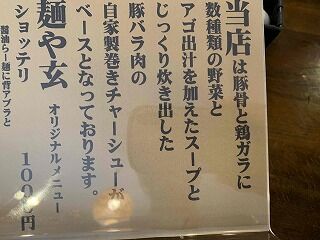 当店は豚骨と鶏ガラに
数種類の野菜と
アゴ出汁を加えたスープと
じっくり炊き出した
豚バラ肉の
自家製巻きチャーシューが
ベースとなっております。
麺や玄 オリジナルメニュー
ショッテリ
醤油らー麺に背アブラと